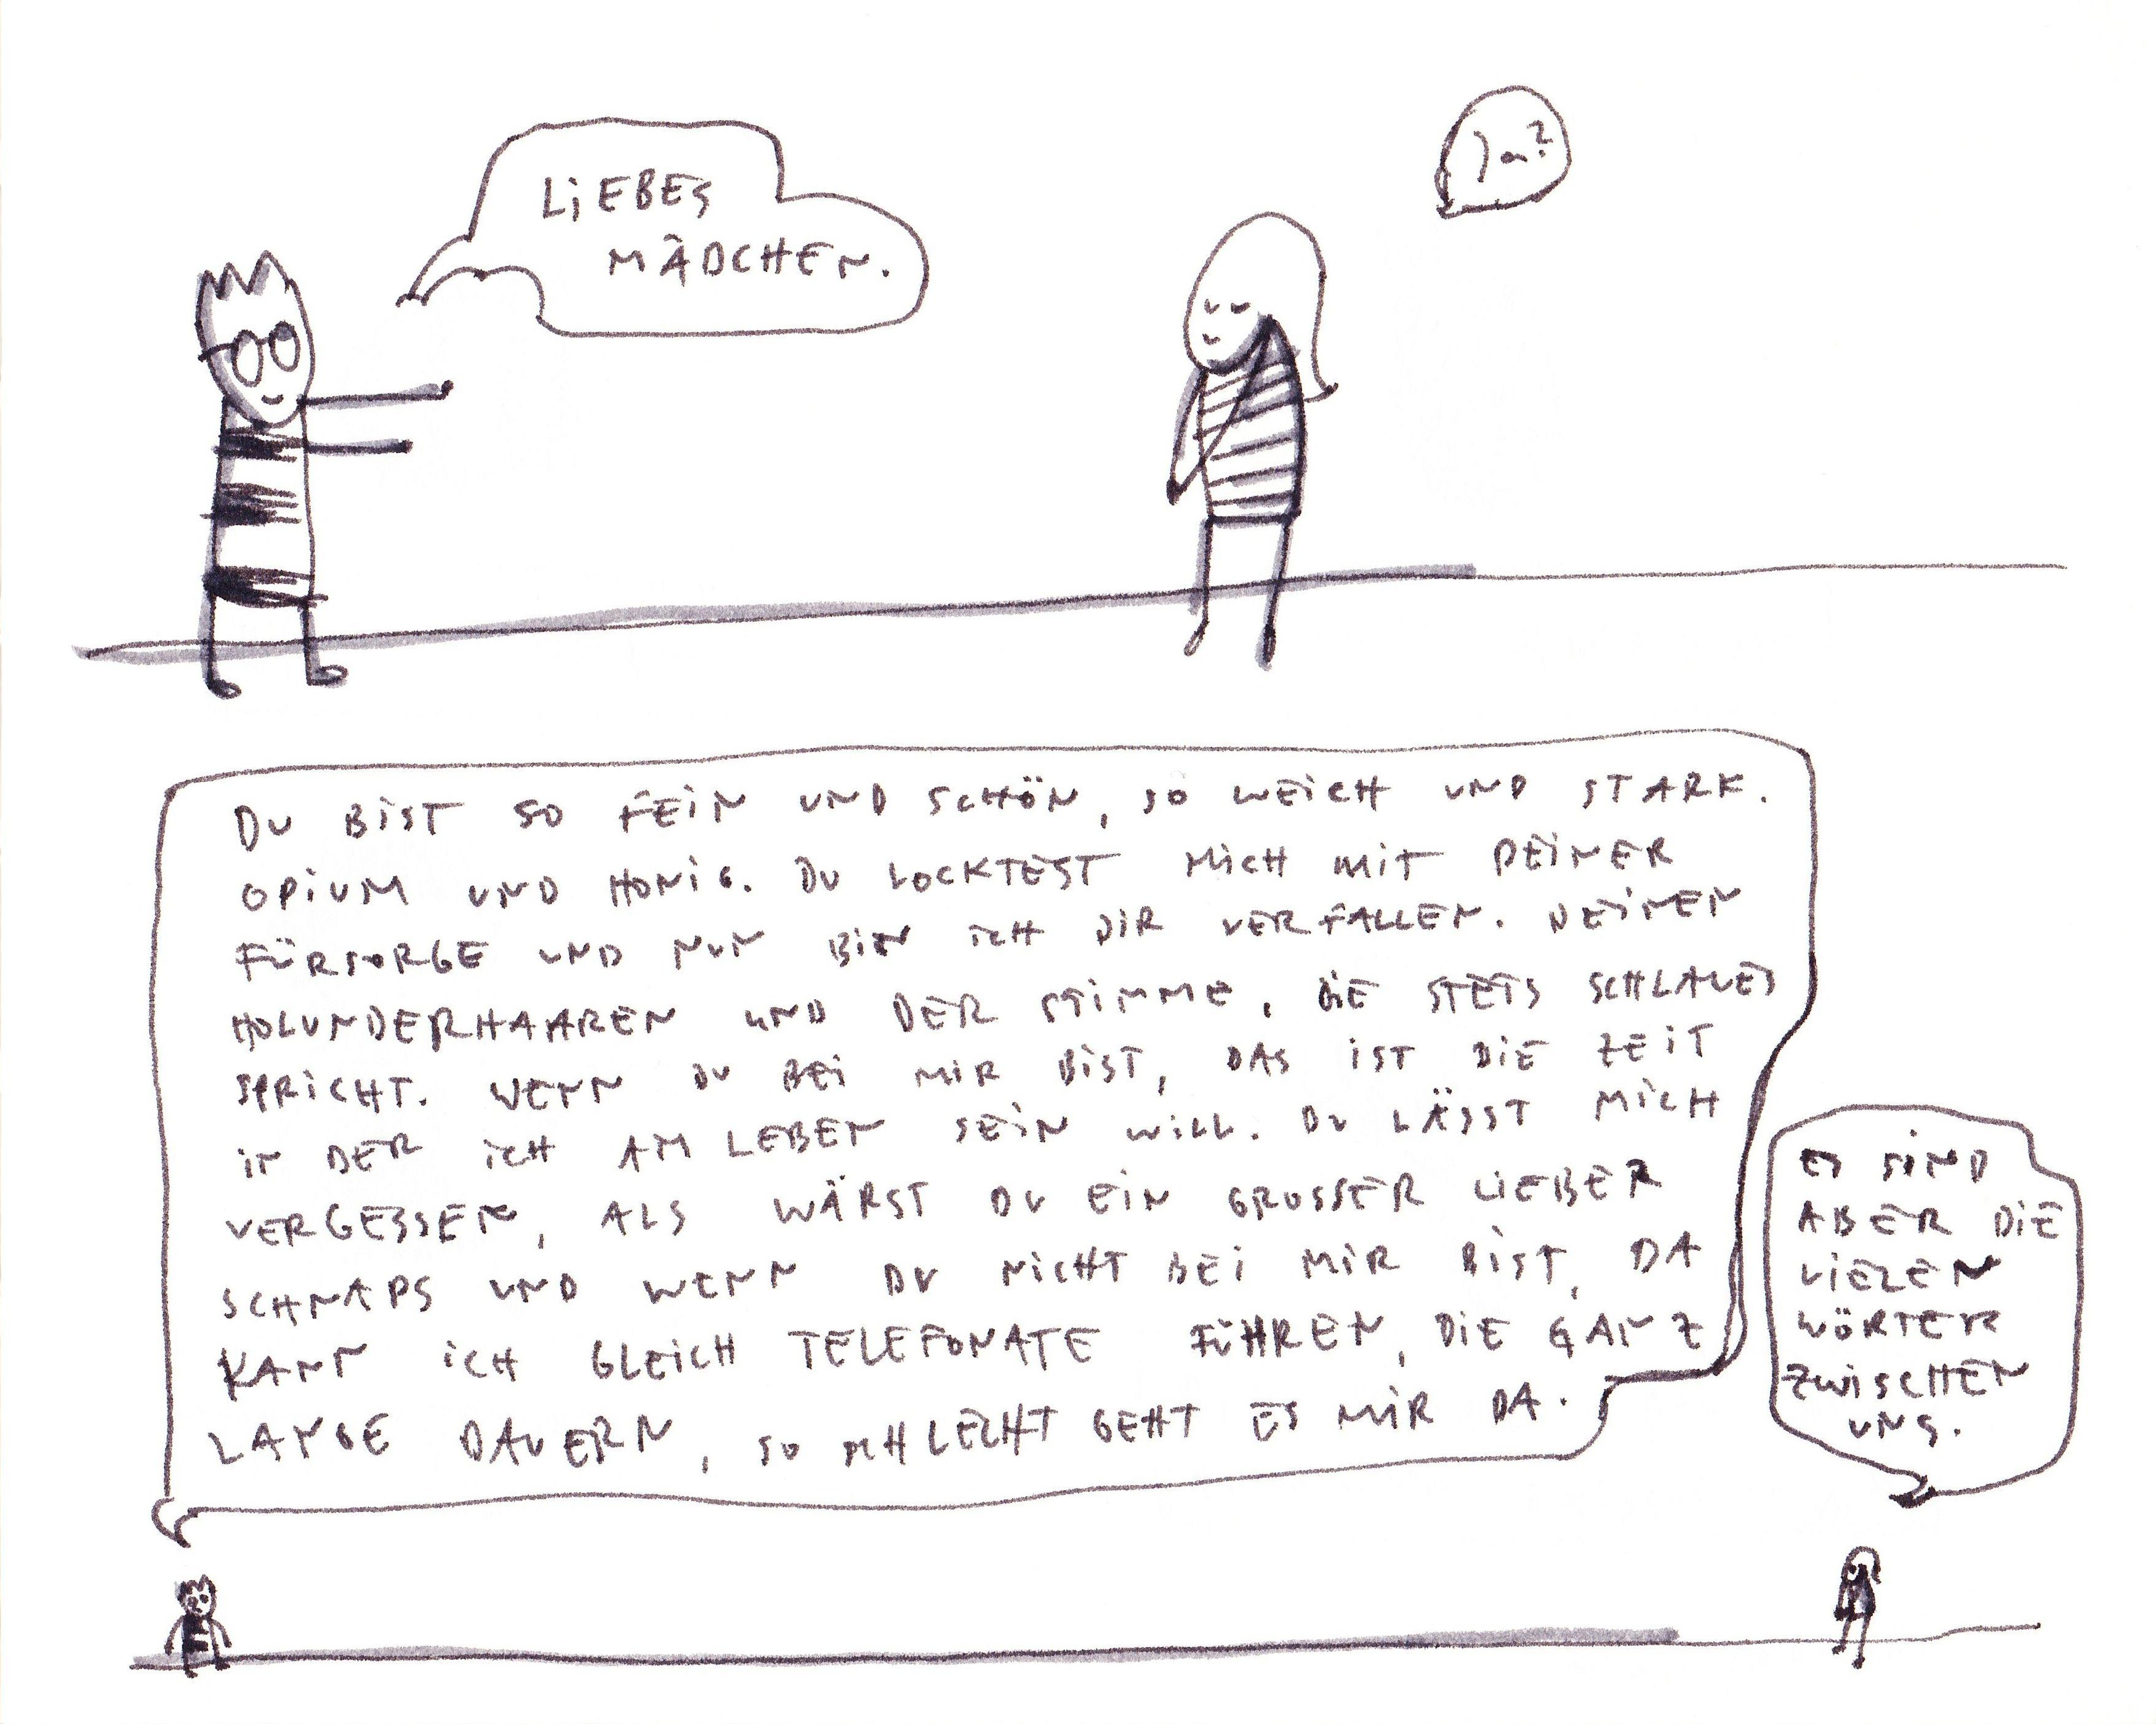 LiEBES
MÄDCHEN.
Ja?
DU BiST SO FEiN UND SCHÖN, SO WEiCH UND STARK.
OPiUM UND HONiG. DU LOCKTEST MiCH MiT DEiNER
FÜRSORGE UND NUN BiN iCH DiR VERFALLEN. DEiNEN
HOLUNDERHAAREN UND DER STiMME, DiE STETS SCHLAUES
SPRiCHT. WENN DU BEi MiR BiST, DAS iST DiE ZEiT
iN DER iCH AM LEBEN SEiN WiLL. DU LÄSST MiCH
VERGESSEN, ALS WÄRST DU EiN GROSSER LiEBER
SCHNAPS UND WENN DU NiCHT BEi MiR BiST, DA
KANN iCH GLEiCH TELEFONATE FÜHREN, DiE GANZ
LANGE DAUERN, SO SCHLECHT GEHT ES MiR DA.
ES SiND
ABER DiE
ViELEN
WÖRTER
ZWiSCHEN
UNS.